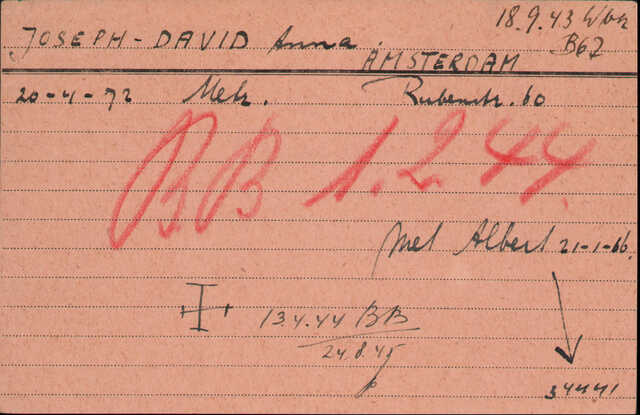 18.9.43 Wbk
JOSEPH-DAVID Anna. B67
AMSTERDAM
20-4-72 Metz. Rubenstr. 60
BB 1.2.44.
met Albert 21-1-66.
13.4.44 BB
24.8.45
34441